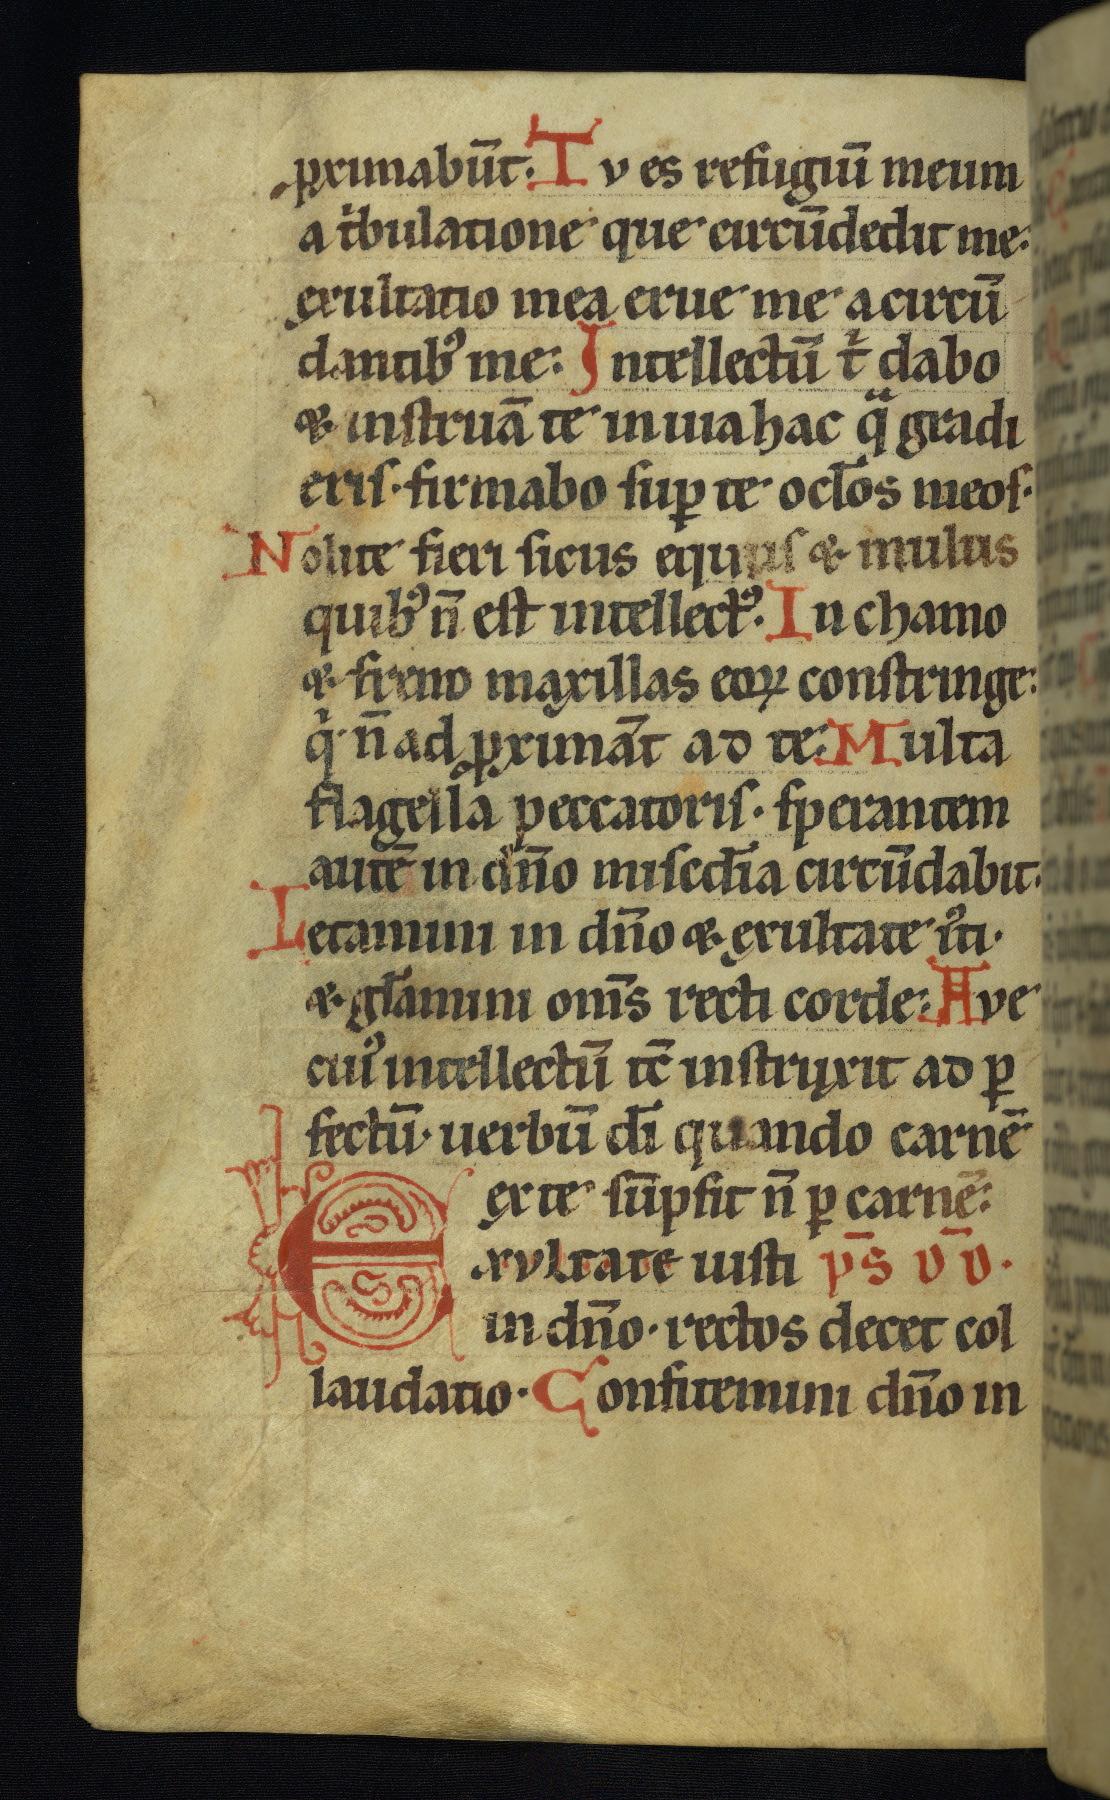 ꝓximabūt. Tv es refugiū meum
a tͥbulatione que circūdedit me.
exultatio mea erue me a circū
dantibꝰ me: Intellectū tͥ dabo
⁊ instruā te in uia hac qͣ gradi
eris. firmabo suꝑ te oclōs meos.
Nolite fieri sicus equus ⁊ mulus
quibꝰ n̄ est intellectꝰ. In chamo
⁊ freno maxillas eoꝝ constringe:
qͥ n̄ adꝓximāt ad te: Multa
flagella peccatoris. sperantem
autē in dn̄o misc̄dia circūdabit.
Letamini in dn̄o ⁊ exultate iͧti.
⁊ glāmini om̄s recti corde: Ave
cuiꝰ intellectū tc̄ instruxit ad ꝑ
fectū. uerbū dī quando carnē
ex te sūpsit n̄ ꝑ carnē:
Exvltate iusti ps̄ v̄ v̄.
in dn̄o. rectos decet col
laudatio. Confitemini dn̄o in